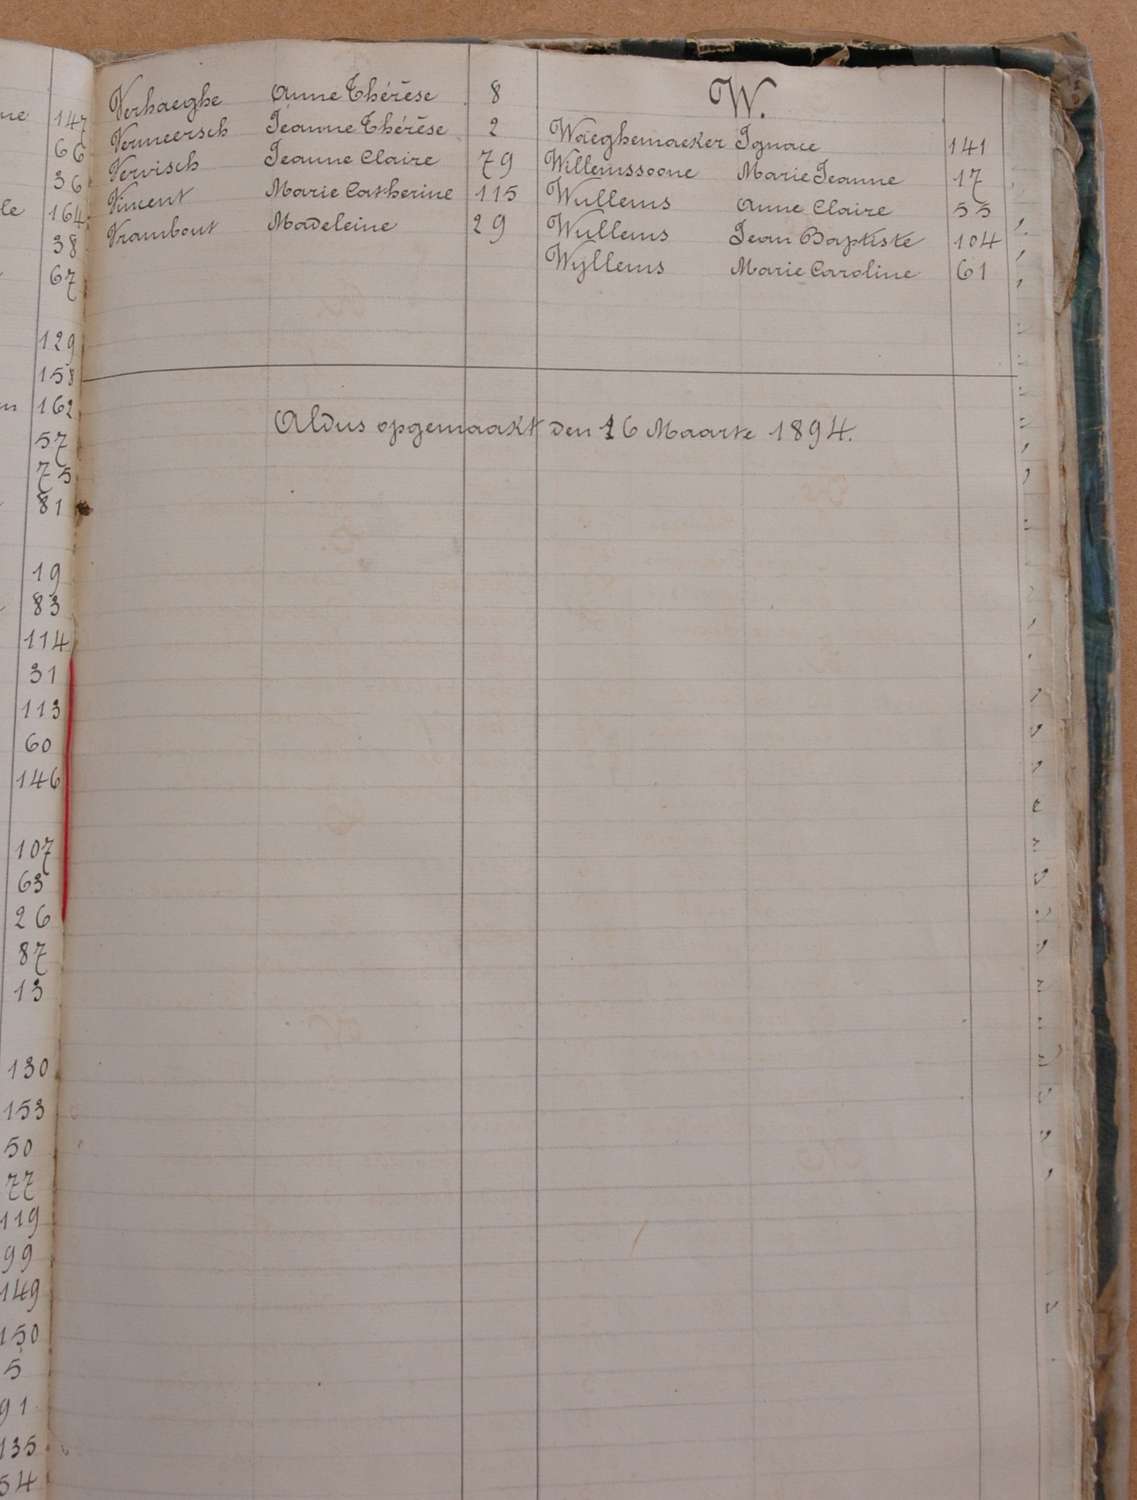 ne 147
66
36
le 164
38
67
129
158
162
57
75
81
19
83
114
31
113
60
146
107
63
26
87
13
130
153
50
77
119
99
149
150
5
91
135
54
Verhaeghe Anne Thérèse 8
Vermeersch Jeanne Thérèse 2
Vervisch Jeanne Claire 79
Vincent Marie Catherine 115
Vrambout Madeleine 29
W.
Waeghemaeker Ignace 141
Willemssoone Marie Jeanne 17
Wullems Anne Claire 55
Wullems Jean Baptiste 104
Wyllems Marie Caroline 61
Aldus opgemaakt den 16 Maarte 1894.